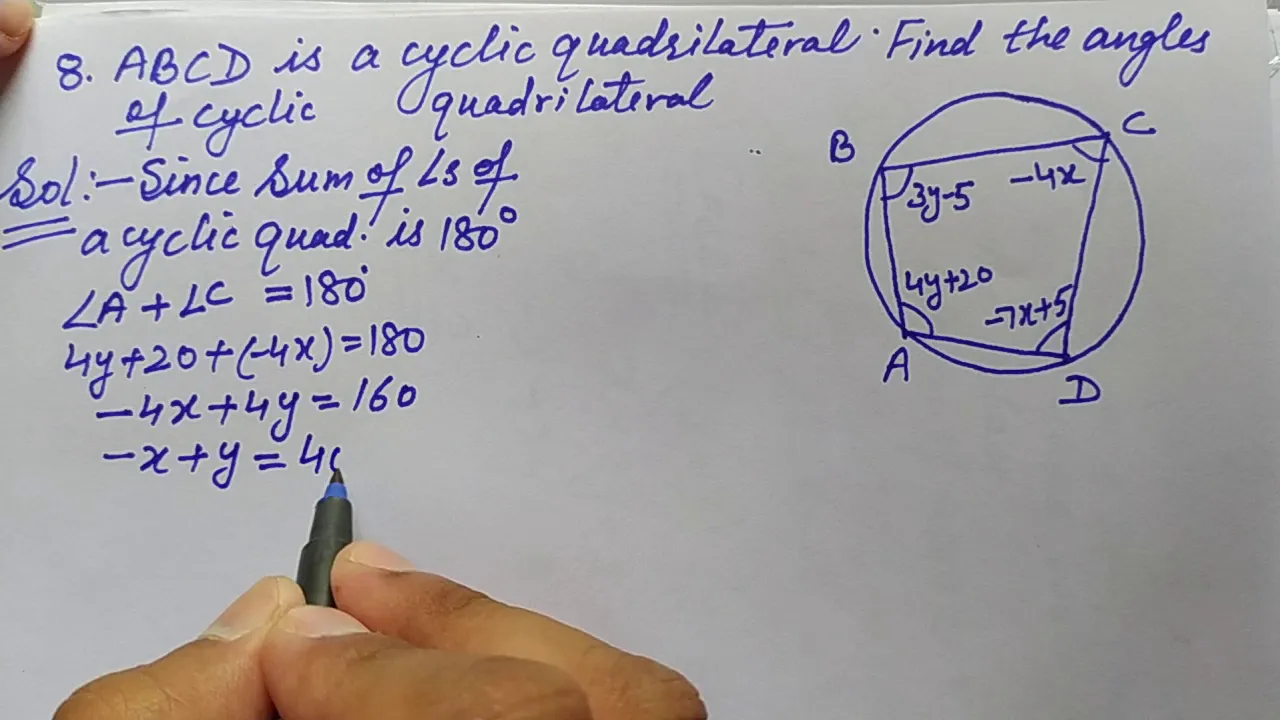 8. ABCD is a cyclic quadrilateral. Find the angles
of cyclic quadrilateral
Sol:- Since Sum of ∠s of
a cyclic quad. is 180°
∠A + ∠C = 180°
4y+20+(-4x)=180
-4x+4y=160
-x+y=40
B
C
3y-5
-4x
4y+20
-7x+5
A
D